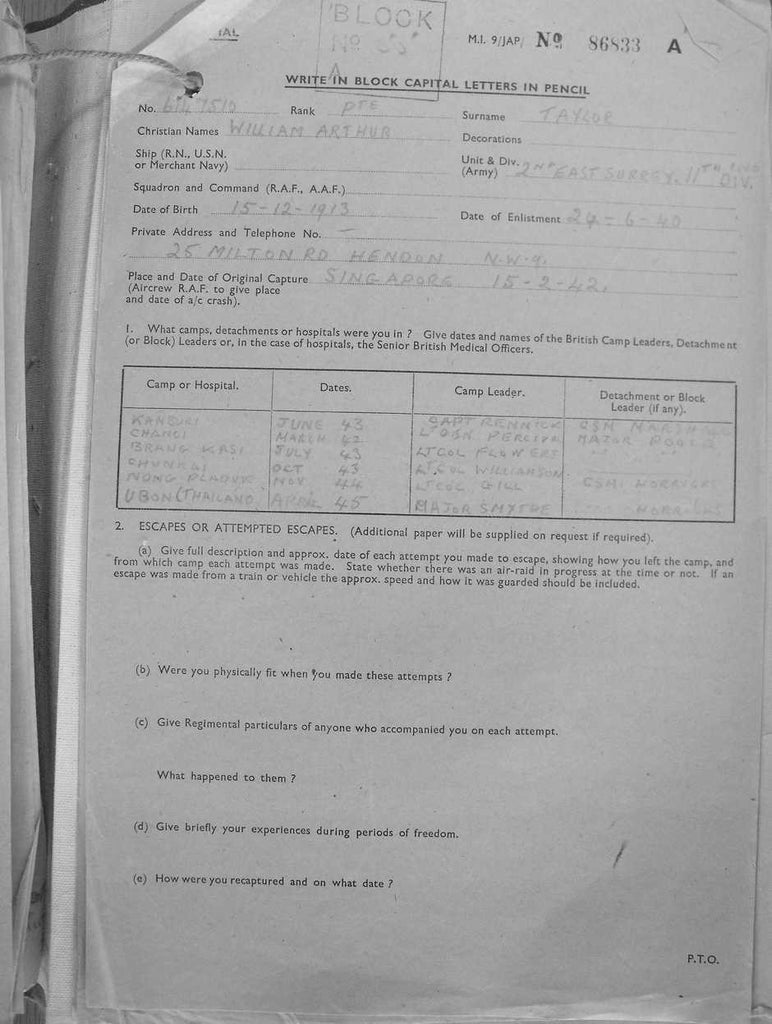 IAL
BLOCK
No
M.I. 9/JAP/ No 86833 A
WRITE IN BLOCK CAPITAL LETTERS IN PENCIL
No. Rank PTE Surname TAYLOR
Christian Names WILLIAM ARTHUR Decorations
Ship (R.N., U.S.N.
or Merchant Navy)
Unit & Div.
(Army) 2ND EAST SURREY. 11TH IND DIV.
Squadron and Command (R.A.F., A.A.F.)
Date of Birth 15-12-1913 Date of Enlistment 24-6-40
Private Address and Telephone No. —
25 MILTON RD HENDON N.W.9.
Place and Date of Original Capture SINGAPORE 15-2-42.
(Aircrew R.A.F. to give place
and date of a/c crash).
1. What camps, detachments or hospitals were you in ? Give dates and names of the British Camp Leaders, Detachment
(or Block) Leaders or, in the case of hospitals, the Senior British Medical Officers.
Camp or Hospital. Dates. Camp Leader. Detachment or Block
Leader (if any).
KANBURI JUNE 43 CAPT RENNICK CSM
CHANGI MARCH 42 PERCIVAL MAJOR
KASI JULY 43 LT COL FLOWERS " "
CHUNKAI OCT 43 LT. COL WILLIAMSON
NONG PLADUK NOV 44 LT COL GILL CSM
UBON (THAILAND) APRIL 45 MAJOR SMYTHE
2. ESCAPES OR ATTEMPTED ESCAPES. (Additional paper will be supplied on request if required).
(a) Give full description and approx. date of each attempt you made to escape, showing how you left the camp, and
from which camp each attempt was made. State whether there was an air-raid in progress at the time or not. If an
escape was made from a train or vehicle the approx. speed and how it was guarded should be included.
(b) Were you physically fit when you made these attempts ?
(c) Give Regimental particulars of anyone who accompanied you on each attempt.
What happened to them ?
(d) Give briefly your experiences during periods of freedom.
(e) How were you recaptured and on what date ?
P.T.O.